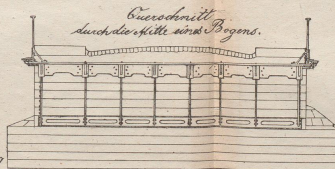 Querschnitt
durch die Mitte eines Bogens.